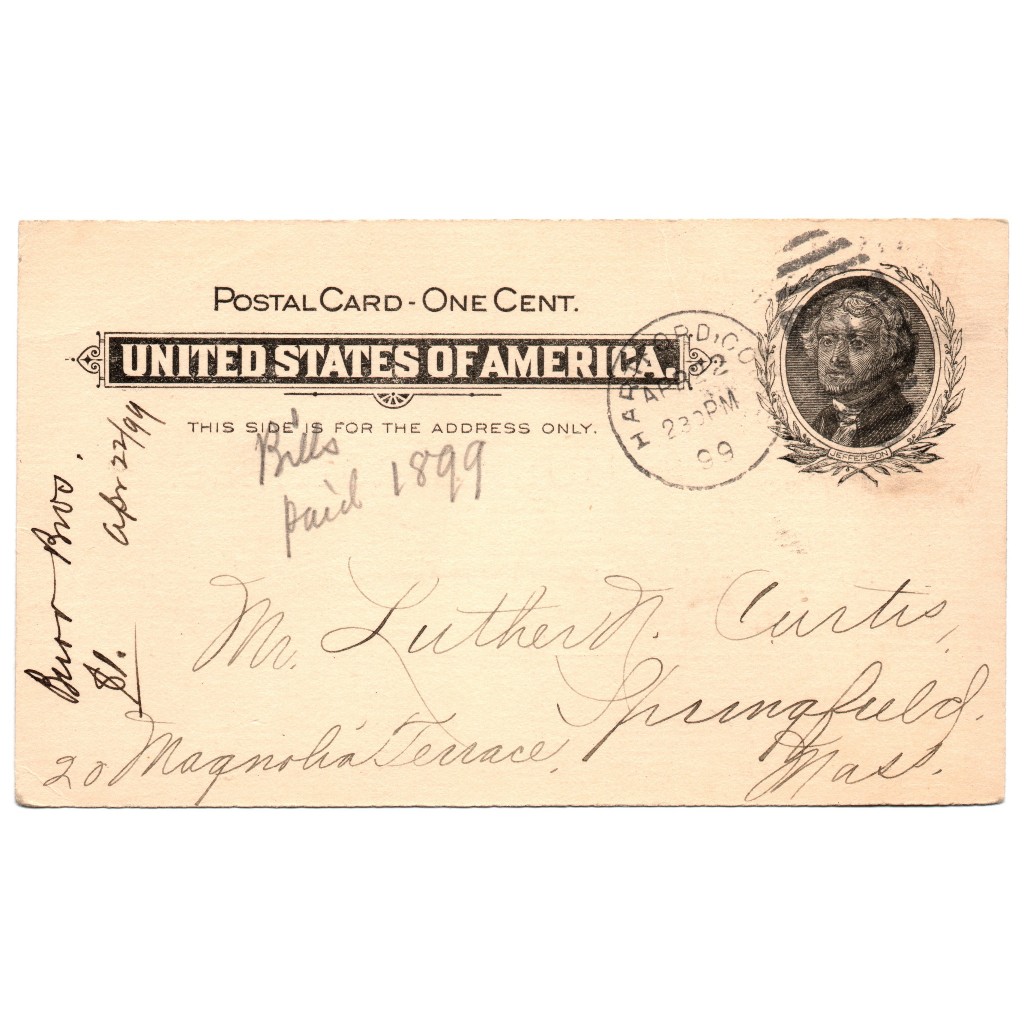 POSTAL CARD - ONE CENT.
UNITED STATES OF AMERICA.
THIS SIDE IS FOR THE ADDRESS ONLY.
HARTFORD, CO
APR 22
230PM
99
JEFFERSON
Bills
paid 1899
Burr Bros.
Apr 22/99
$1.
Mr. Luther N. Curtis,
Springfield,
20 Magnolia Terrace. Mass.